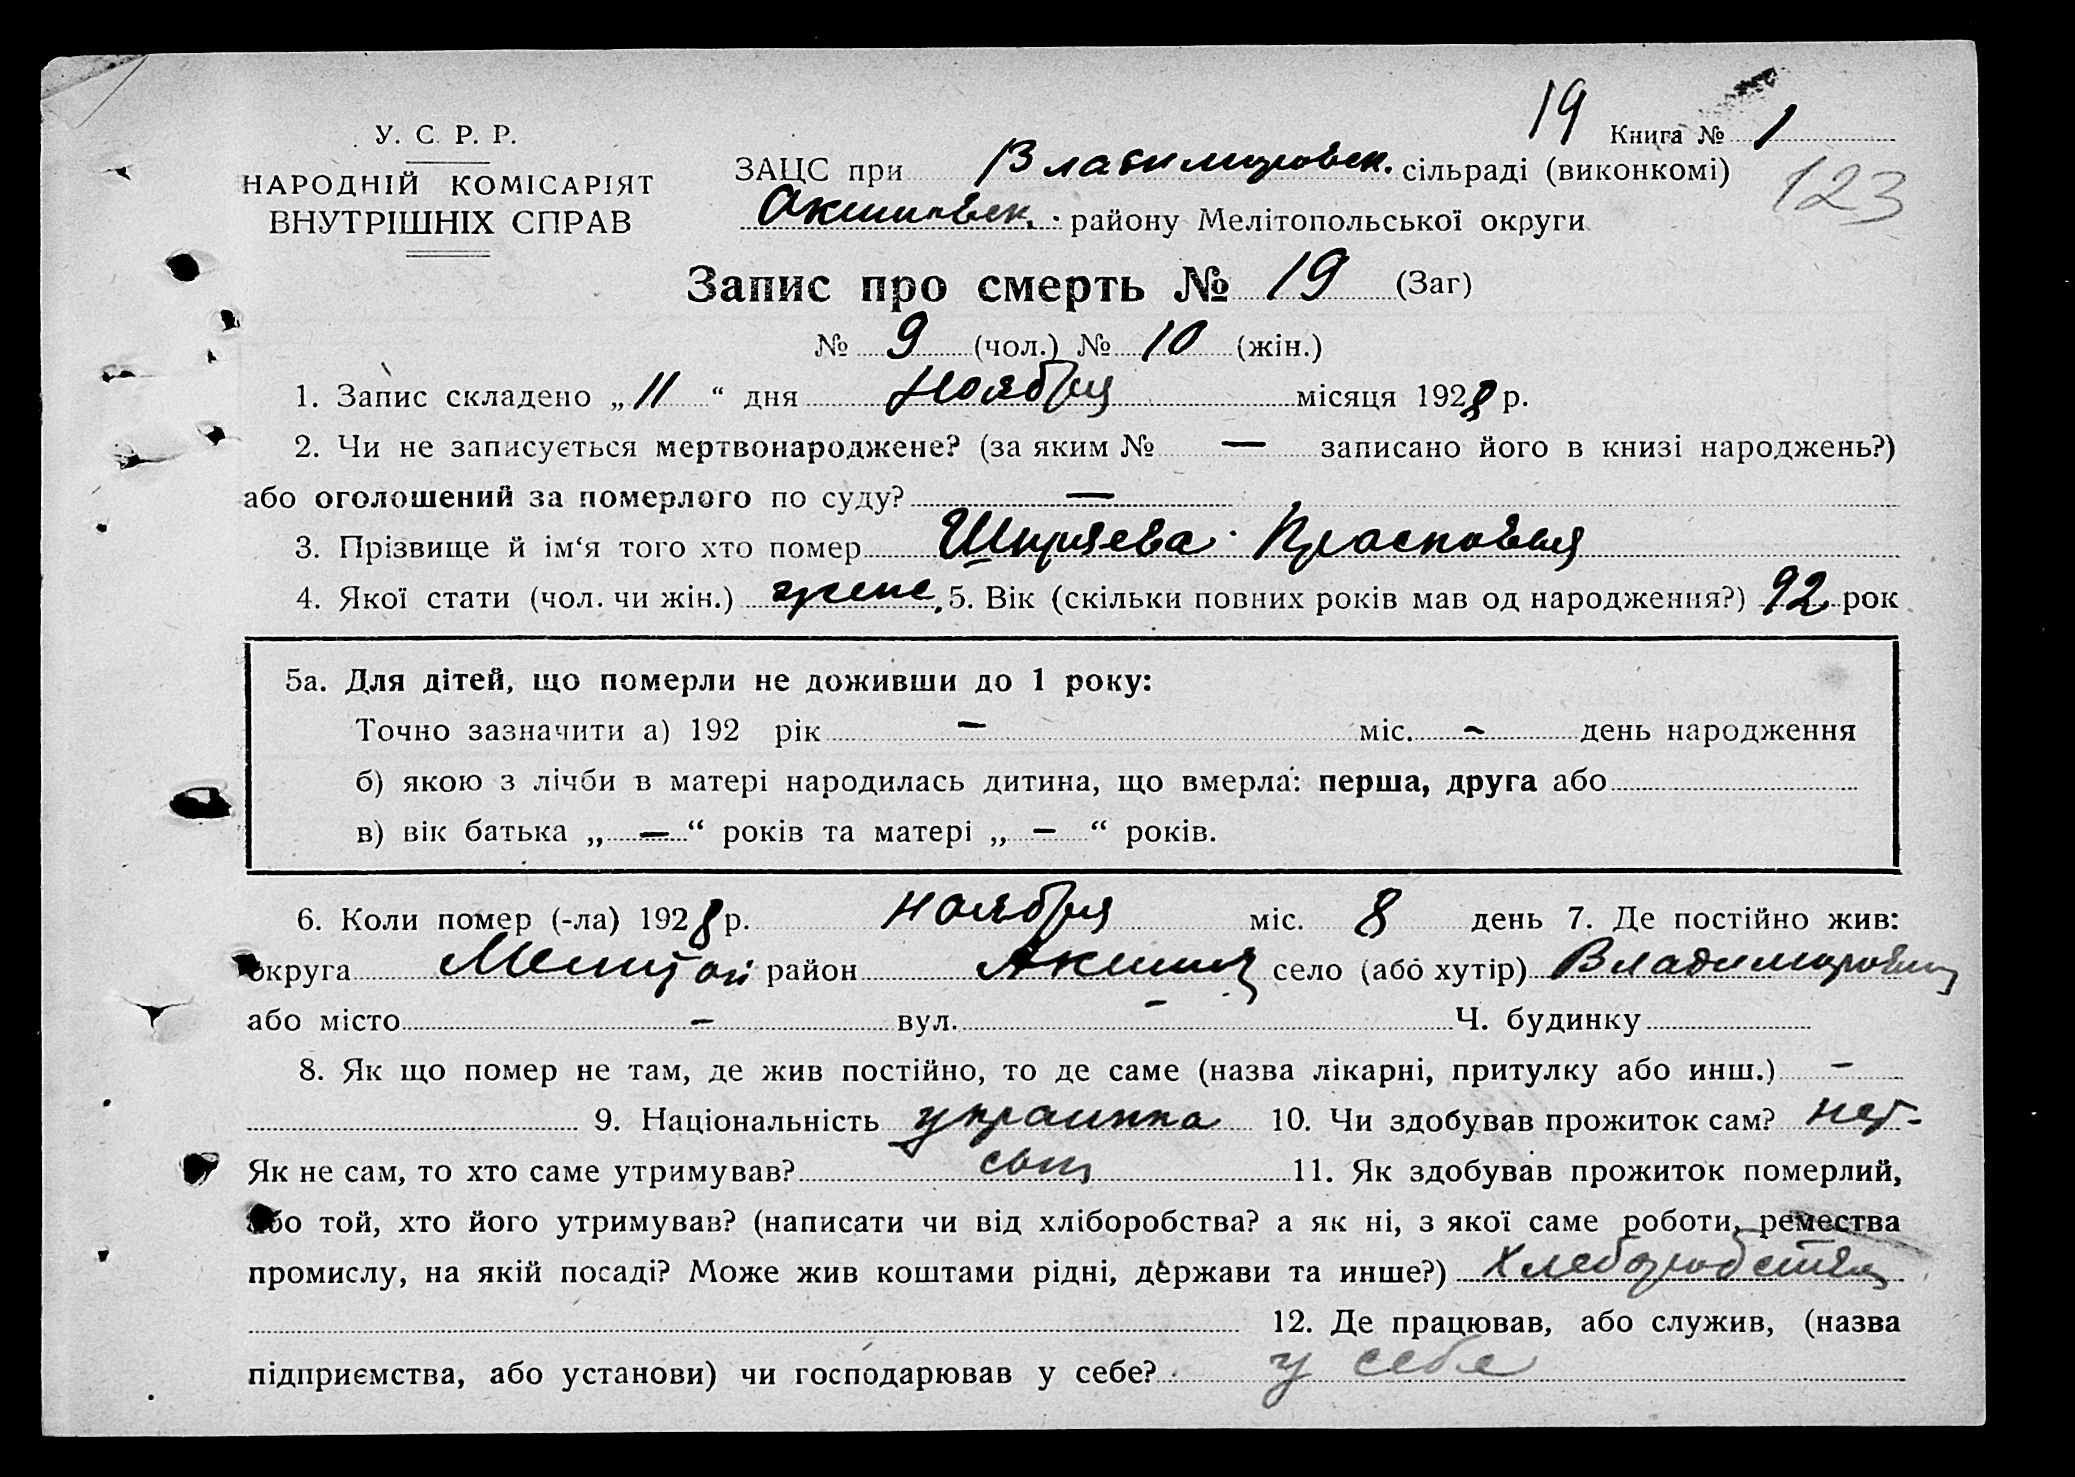 19 Книга № 1
У. С. Р. Р.
НАРОДНІЙ КОМІСАРІЯТ
ВНУТРІШНІХ СПРАВ
ЗАЦС при Владимировск. сільраді (виконкомі)
123
Акимовск. району Мелітопольської округи
Запис про смерть № 19 (Заг)
№ 9 (чол.) № 10 (жін.)
1. Запис складено „11“ дня Ноября місяця 1928 р.
2. Чи не записується мертвонароджене? (за яким № — записано його в книзі народжень?)
або оголошений за померлого по суду? —
3. Прізвище й ім‘я того хто помер Ширяева Прасковья
4. Якої стати (чол. чи жін.) женс. 5. Вік (скільки повних років мав од народження?) 92 рок
5а. Для дітей, що померли не доживши до 1 року:
Точно зазначити а) 192 рік — міс. — день народження
б) якою з лічби в матері народилась дитина, що вмерла: перша, друга або
в) вік батька „—“ років та матері „—“ років.
6. Коли помер (-ла) 1928 р. ноября міс. 8 день 7. Де постійно жив:
округа район село (або хутір)
або місто — вул. — Ч. будинку
8. Як що помер не там, де жив постійно, то де саме (назва лікарні, притулку або инш.) —
9. Національність украинка 10. Чи здобував прожиток сам? нет-
Як не сам, то хто саме утримував? сын 11. Як здобував прожиток померлий,
або той, хто його утримував? (написати чи від хліборобства? а як ні, з якої саме роботи, ремества
промислу, на якій посаді? Може жив коштами рідні, держави та инше?)
12. Де працював, або служив, (назва
підприємства, або установи) чи господарював у себе? у себе